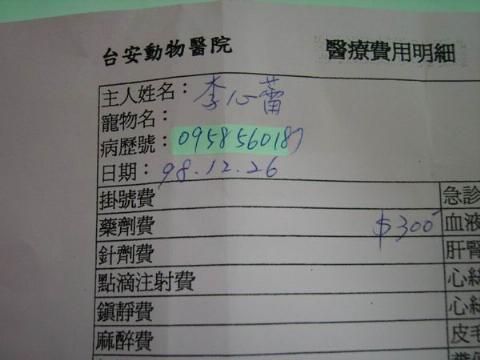 台安動物醫院 醫療費用明細
主人姓名： 李心蕾
寵物名：
病歷號： 0958560187
日期： 98.12.26
掛號費 急診
藥劑費 $300 血液
針劑費 肝腎
點滴注射費 心絲
鎮靜費 心絲
麻醉費 皮毛